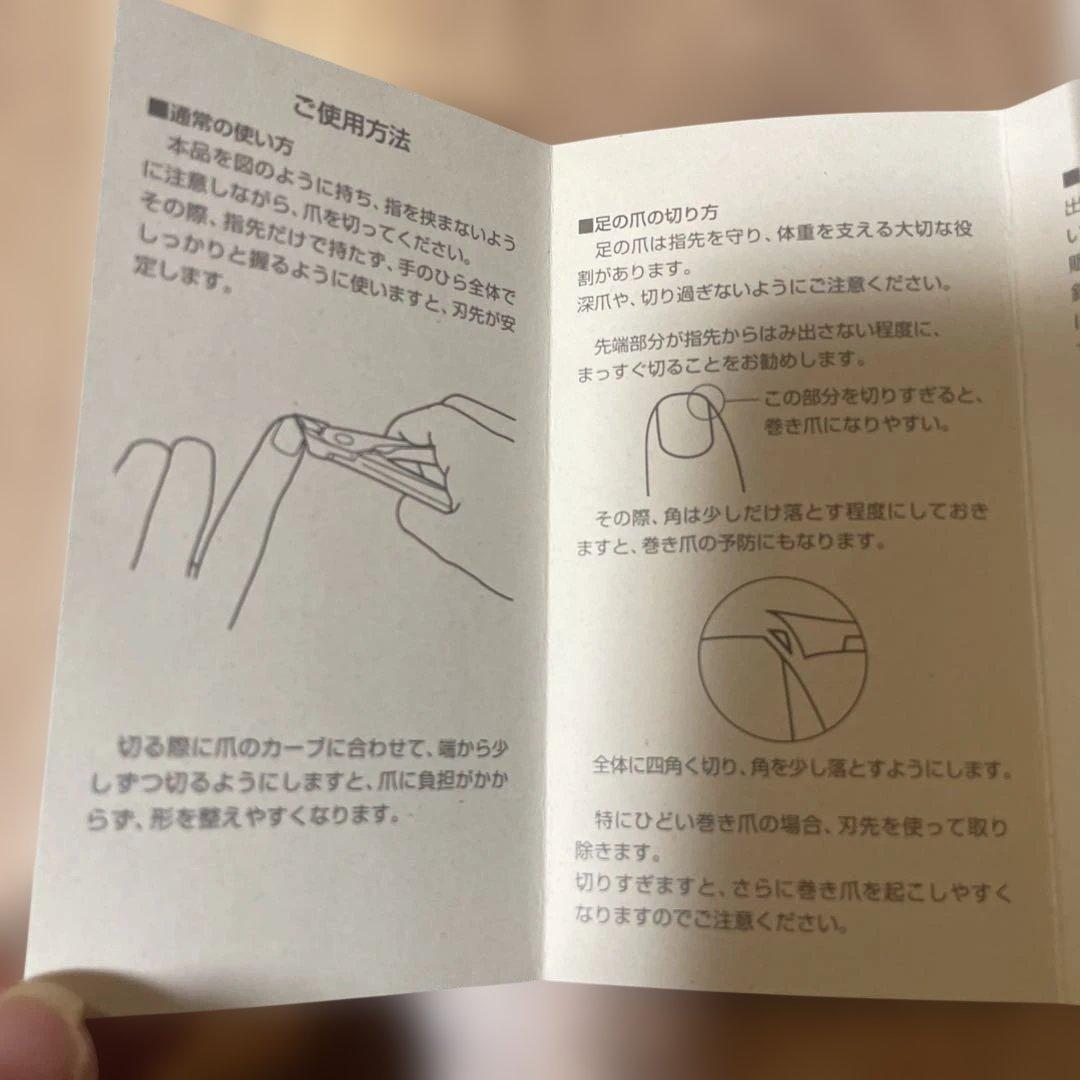 ご使用方法
■通常の使い方
本品を図のように持ち、指を挟まないよう
に注意しながら、爪を切ってください。
その際、指先だけで持たず、手のひら全体で
しっかりと握るように使いますと、刃先が安
定します。
切る際に爪のカーブに合わせて、端から少
しずつ切るようにしますと、爪に負担がかか
らず、形を整えやすくなります。
■足の爪の切り方
足の爪は指先を守り、体重を支える大切な役
割があります。
深爪や、切り過ぎないようにご注意ください。
先端部分が指先からはみ出さない程度に、
まっすぐ切ることをお勧めします。
この部分を切りすぎると、
巻き爪になりやすい。
その際、角は少しだけ落とす程度にしておき
ますと、巻き爪の予防にもなります。
全体に四角く切り、角を少し落とすようにします。
特にひどい巻き爪の場合、刃先を使って取り
除きます。
切りすぎますと、さらに巻き爪を起こしやすく
なりますのでご注意ください。
■
出